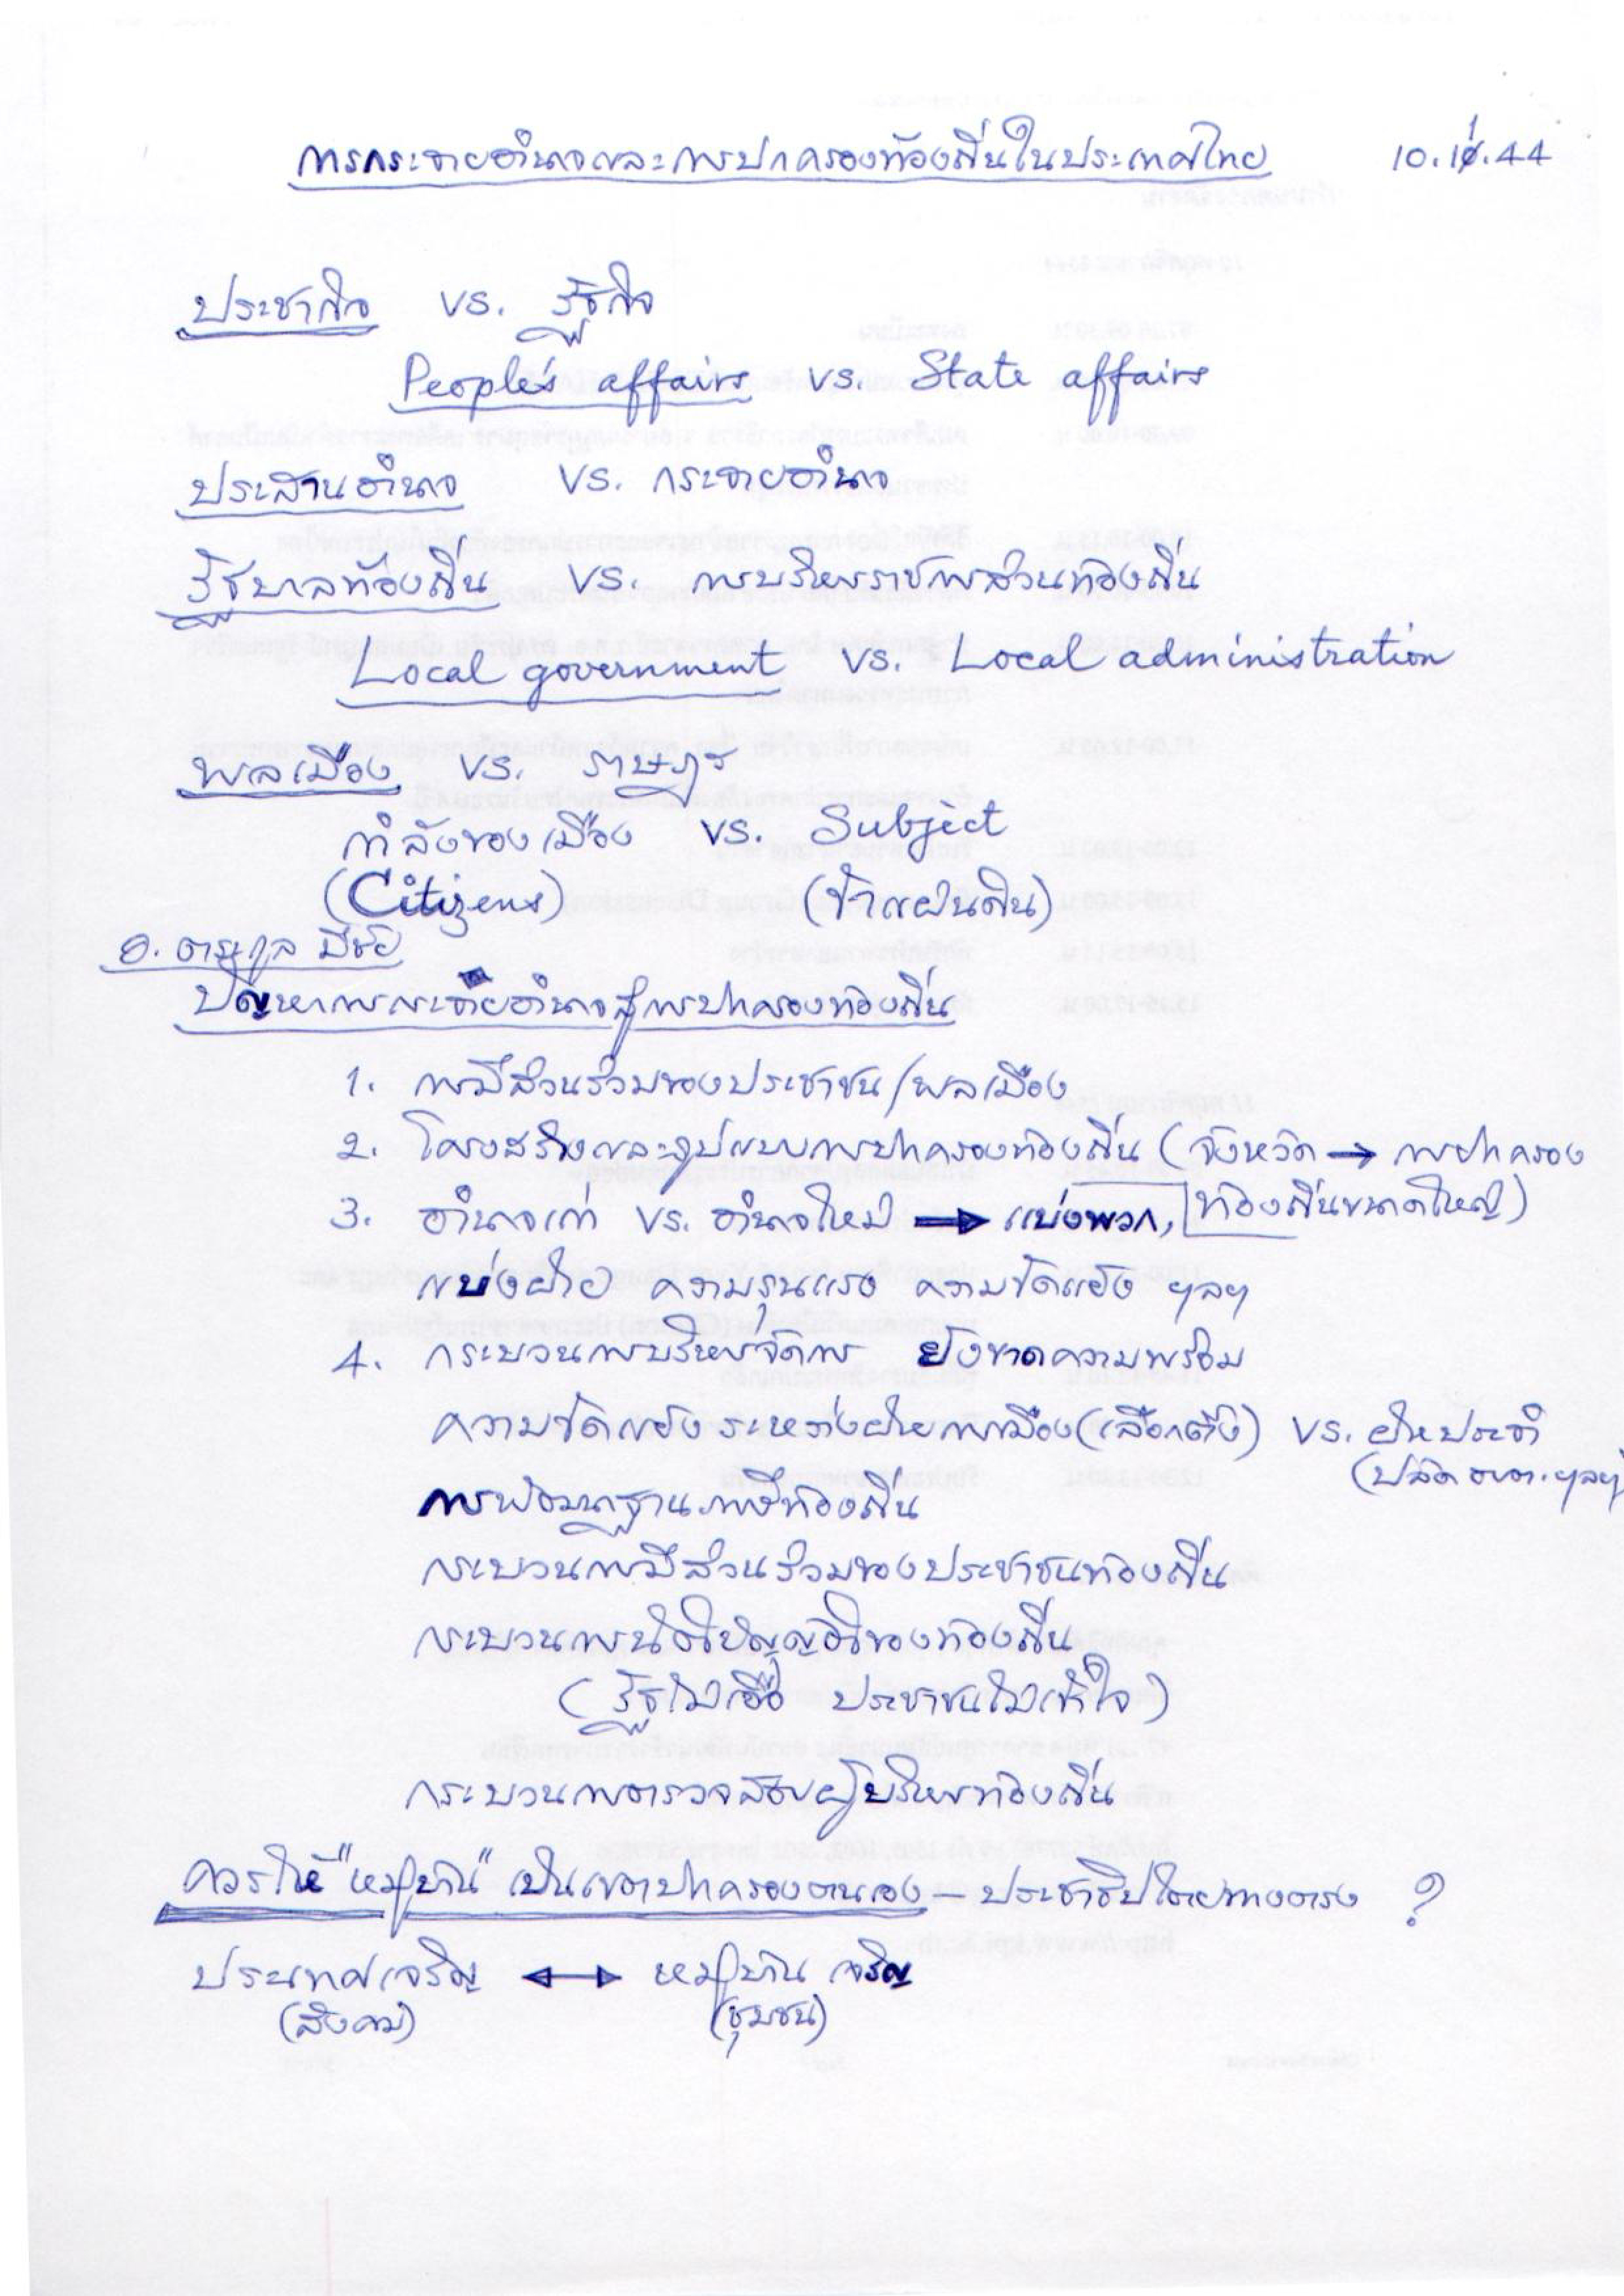 การกระจายอำนาจและการปกครองท้องถิ่นในประเทศไทย 10.11.44
ประชากิจ vs. รัฐกิจ
People's affairs vs. State affairs
ประสานอำนาจ vs. กระจายอำนาจ
รัฐบาลท้องถิ่น vs. การบริหารราชการส่วนท้องถิ่น
Local government vs. Local administration
พลเมือง vs. ราษฎร
กำลังของเมือง vs. Subject
(Citizens) (ข้าแผ่นดิน)
อ. ตระกูล มีชัย
ปัญหาการกระจายอำนาจสู่การปกครองท้องถิ่น
1. การมีส่วนร่วมของประชาชน/พลเมือง
2. โครงสร้างและรูปแบบการปกครองท้องถิ่น (จังหวัด → การปกครอง
ท้องถิ่นขนาดใหญ่)
3. อำนาจเก่า vs. อำนาจใหม่ → แบ่งพวก,
แบ่งฝ่าย ความรุนแรง ความขัดแย้ง ฯลฯ
4. กระบวนการบริหารจัดการ ยังขาดความพร้อม
ความขัดแย้งระหว่างฝ่ายการเมือง(เลือกตั้ง) vs. ฝ่ายประจำ
(ปลัด อบต. ฯลฯ)
การพัฒนาฐานภาษีท้องถิ่น
กระบวนการมีส่วนร่วมของประชาชนท้องถิ่น
กระบวนการนิติบัญญัติของท้องถิ่น
(รัฐไม่เอื้อ ประชาชนไม่เข้าใจ)
กระบวนการตรวจสอบผู้บริหารท้องถิ่น
ควรให้ "หมู่บ้าน" เป็นเขตปกครองตนเอง – ประชาธิปไตยทางตรง ?
ประเทศเจริญ ↔ หมู่บ้านเจริญ
(สังคม) (ชุมชน)